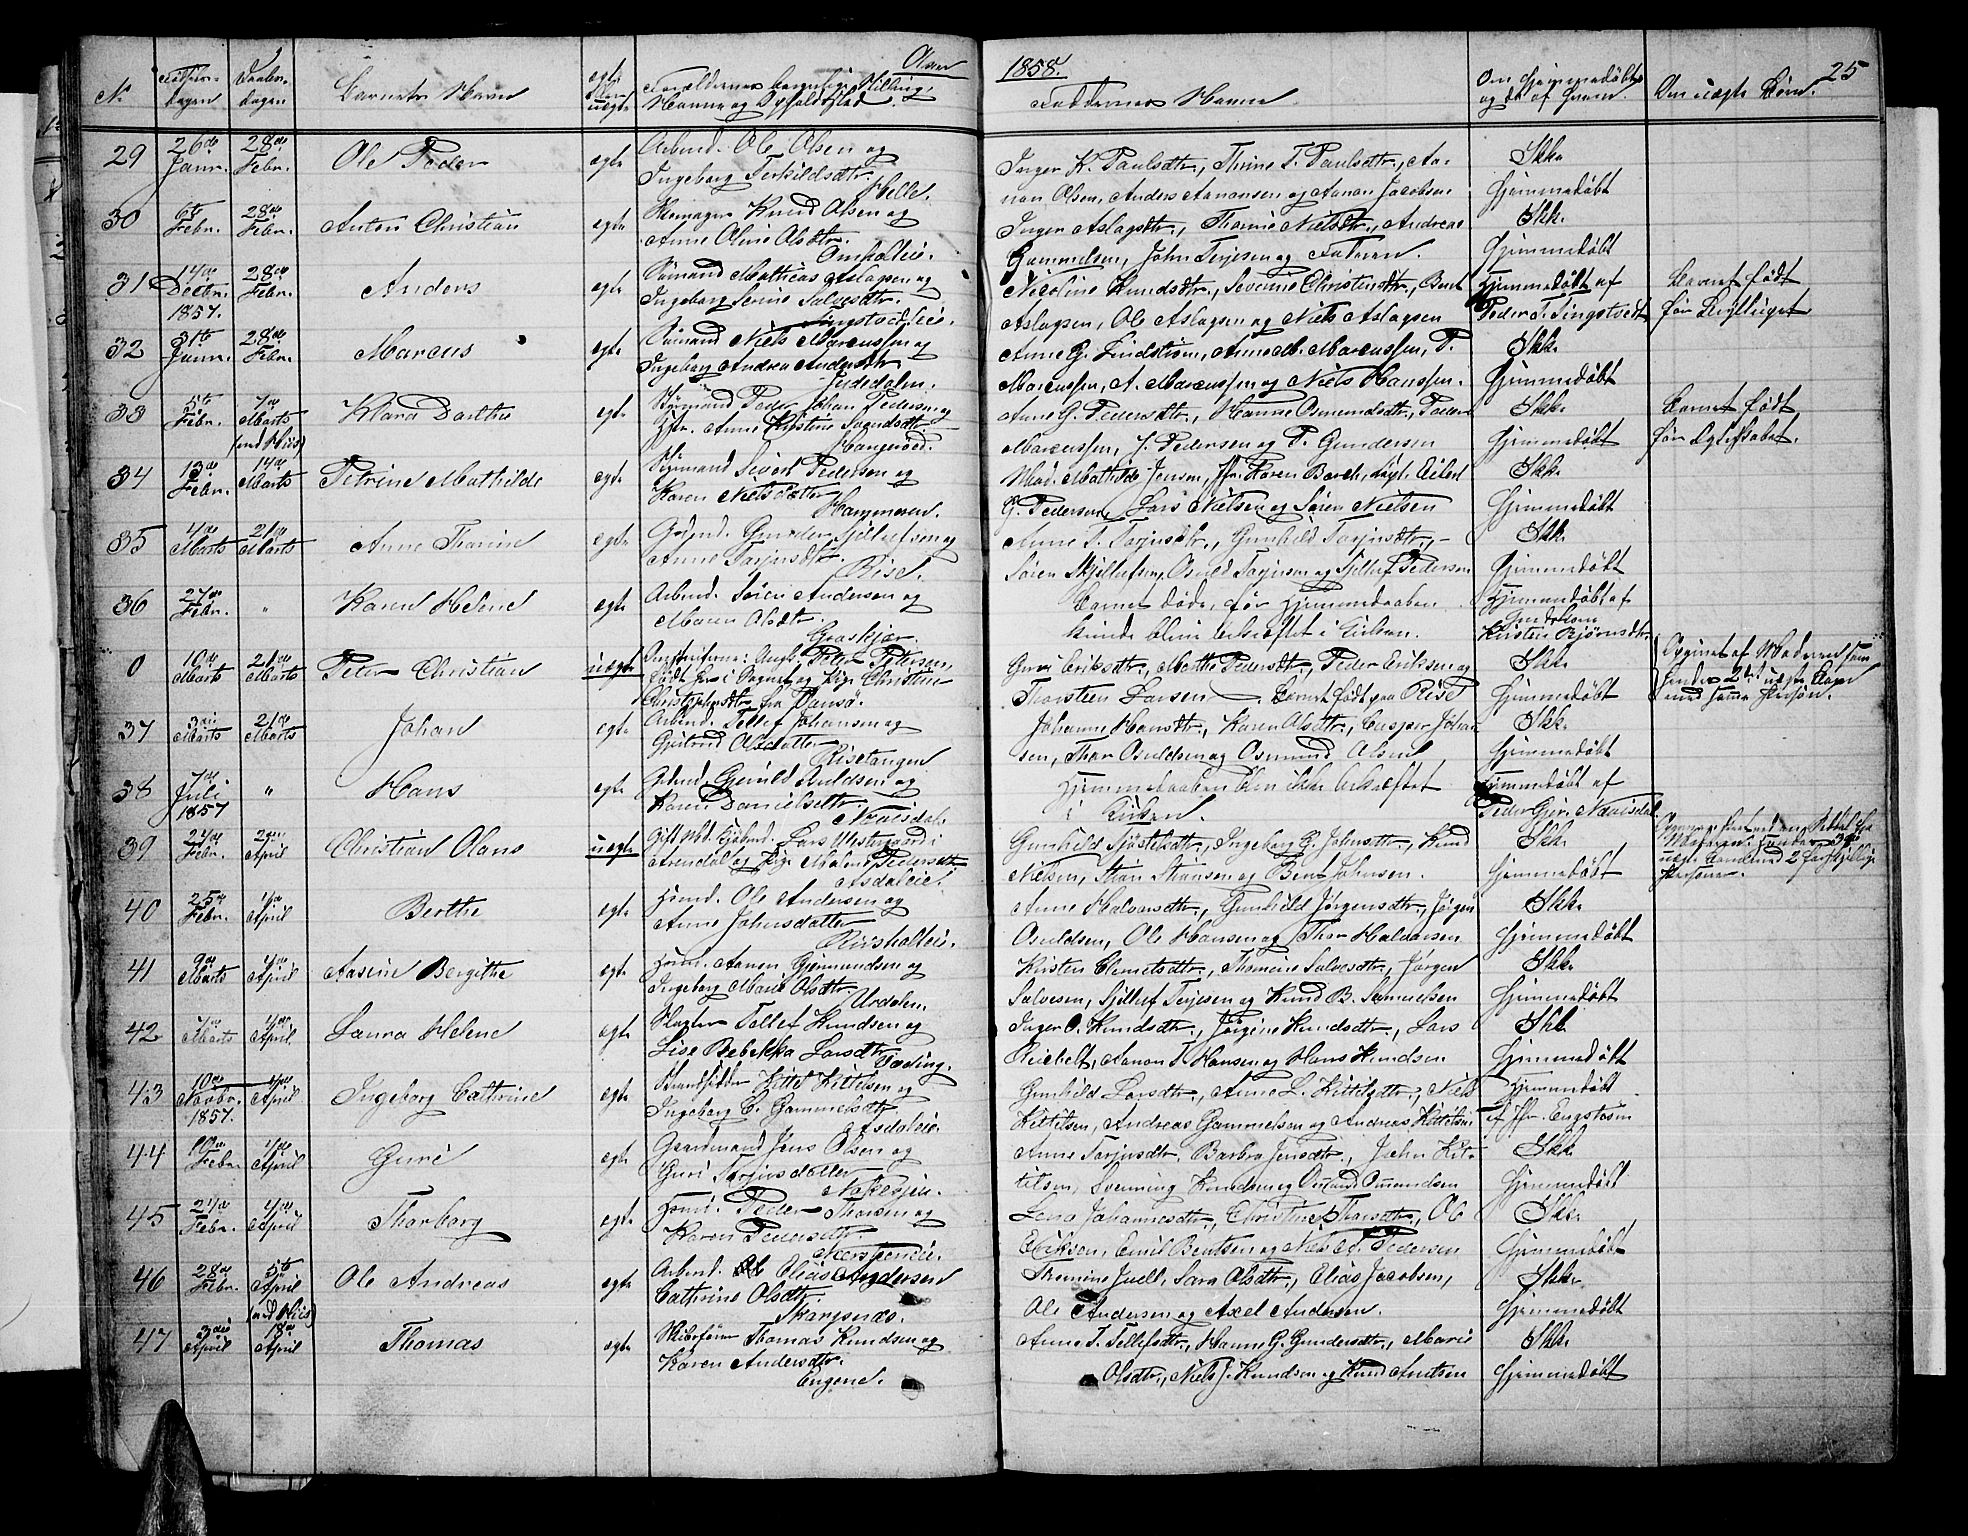 Aar 1858.
25
No
Fødsels-
dagen
Daabs-
dagen
Barnets Navn
egte
eller
uegte
Forældrenes borgerlige Stilling,
Navne og Opholdssted.
Faddernes Navne
Om hjemmedøbt
og da af hvem.
Om uægte Børn.
29
26de
Janr.
28de
Febr.
Ole Peder
egte
Arbmd. Ole Olsen og
Ingeborg Terkildsdtr.
Helle.
Inger K. Paulsdtr., Thrine T. Paulsdtr., Aa-
non Olsen, Anders Aanonsen og Aanon Jacobsen
Ikke
hjemmedøbt
30
6te
Febr.
28de
Febr.
Anton Christian
egte
Knud Olsen og
Anne Oline Olsdtr.
Omholteie.
Inger Aslagsdtr., Thomine Nielsdtr., Andreas
Gammelsen, John Terjesen og Faderen.
Ikke
hjemmedøbt
31
14de
Decbr.
1857.
28de
Febr.
Anders
egte
Sømand Mathias Aslagsen og
Ingeborg Serine Salvesdtr.
Nicoline Knudsdtr., Severine Christensdtr., Bent
Aslagsen, Ole Aslagsen og Niels Aslagsen
hjemmedøbt af
Peder T. Tingstvedt
Barnet født
før Bryllupet
32
31te
Janr.
28de
Febr.
Marcus
egte
Sømand Niels Marcussen og
Ingeborg Andrea Andersdtr.
Anne G. Lindstrøm, Anne M. Marcussen, P.
Marcussen, A. Marcussen og Niels Hanssen.
Ikke
hjemmedøbt
33
5te
Febr.
7de
Marts
(ved Kirs)
Klara Dorthe
egte
Styrmand Peder Johan Pedersen og
Hstr. Anne Kirstine Svendsdtr.
Anne G. Pedersdtr., Hanne Osmundsdtr., Peder
Marcussen, J. Pedersen og P. Gundersen
Ikke
hjemmedøbt
Barnet født
før Egteskabet.
34
13de
Febr.
14de
Marts
Petrine Mathilde
egte
Sivert Pedersen og
Karen Nielsdatter
Hammeren.
Mad. Mathilde Jensen, Jfr. Karen Barch, Eilert
G. Pedersen, Lars Nielsen og Søren Nielsen
Ikke
hjemmedøbt
35
4de
Marts
21de
Marts
Anne Thorine
egte
Grdmd. Gunder Sjellefsen og
Anne Torjusdtr.
Rise.
Anne T. Torjusdtr., Gunhild Torjusdtr., -
Søren Skjellefsen, Osuld Torjusen og Sjellef Pedersen
Ikke
hjemmedøbt
36
27de
Febr.
"
Karen Helene
egte
Arbmd. Søren Andersen og
Maren Olsdtr.
Graskjær.
Barnet døde, før hjemmedaaben
kunde blive bekræftet i Kirken.
hjemmedøbt af
Kirsten Bjørnsdtr.
0
10de
Marts
21de
Marts
Peter Christian
uegte
Peter Petersen,
og Pige Christine
Christophersdtr. fra
Guri Eriksdtr., Marthe Pedersdtr., Peder Eriksen og
Thorsten Larsen - Barnet født paa Rise
Ikke
hjemmedøbt
Opgivet af Moderen som
hendes 2det uegte Barn
med samme Person.
37
3die
Marts
21de
Marts
Johan
egte
Arbmd. Tellef Johansen og
Gjertrud Olsdatter
Risetangen
Johanne Hansdtr., Karen Olsdtr., Casper Johan-
sen, Thor Osuldsen og Osmund Olsen
Ikke
hjemmedøbt
38
7de
Juli
1857
"
Hans
egte
Arbmd. Gjeruld Auldsen og
Karen Danielsdtr.
Næsdal.
Hjemmedaaben blev ikke bekræftet
i Kirken.
hjemmedøbt af
Peder Gjer. Næsdal
39
24de
Febr.
2den
April
Christian Olaus
uegte
Gift Md. Lars Westergaard i
Arendal og Pige Malene Pedersdtr.
Asdaleie.
Gunhild Sjøstelsdtr., Ingeborg G. Johnsdtr., Knud
Nielsen, Stian Stiansen og Bent Johnsen.
Ikke
hjemmedøbt
40
25de
Febr.
4de
April
Berthe
egte
Hsmd. Ole Andersen og
Anne Johnsdatter
Riisholteie.
Anne Halvorsdtr., Gunhild Jørgensdtr., Jørgen
Osuldsen, Ole Hansen og Thor Halvorsen
Ikke
hjemmedøbt
41
9de
Marts
4de
April
Aasine Bergithe
egte
Hsmd. Aanon Gjermundsen og
Ingeborg Marie Olsdtr.
Urdalen.
Kirsten Clemetsdtr., Thomine Salvesdtr., Jørgen
Salvesen, Sjellef Terjesen og Knud B. Samuelsen
Ikke
hjemmedøbt
42
7de
Marts
4de
April
Laura Helene
egte
Slagter Tellef Knudsen og
Lise Rebekka Larsdtr.
Tøding.
Inger O. Knudsdtr., Jørgine Knudsdtr., Lars
Reichelt, Aanon T. Hansen og Hans Knudsen
Ikke
hjemmedøbt
43
10de
Novbr.
1857.
4de
April
Ingeborg Cathrine
egte
Strandsidder Kittel Kittelsen og
Ingeborg C. Gammelsdtr.
Asdaleie.
Gunhild Larsdtr., Anne L. Kittelsdtr., Niels
Kittelsen, Andreas Gammelsen og Andreas Kittelsen
hjemmedøbt
af Jfr. Engstrøm
44
10de
Febr.
4de
April
Guri
egte
Gaardmand Jens Olsen og
Guri Torjusdatter
Anne Torjusdtr., Barbra Jensdtr., John Kit-
telsen, Svenning Knudsen og Osuld Omundsen
Ikke
hjemmedøbt
45
24de
Febr.
4de
April
Thorborg
egte
Hsmd. Peder Thorsen og
Karen Pedersdtr.
Lena Johannesdtr., Christine Thorsdtr., Ole
Eriksen, Emil Bentsen og Niels A. Pedersen
Ikke
hjemmedøbt
46
28de
Febr.
5te
April
(ved Kirs)
Ole Andreas
egte
Arbmd. Elias Andersen
Cathrine Olsdtr.
Skarpnæs.
Thomine Juell, Sara Olsdtr., Elias Jacobsen,
Ole Andersen og Axel Andersen.
Ikke
hjemmedøbt
47
3die
April
18de
April
Thomas
egte
Skibsfører Thomas Knudsen og
Karen Andersdtr.
Engene.
Anne T. Tellefsdtr., Hanne G. Gundersdtr., Marie
Olsdtr., Niels J. Knudsen og Knud Knudsen
Ikke
hjemmedøbt